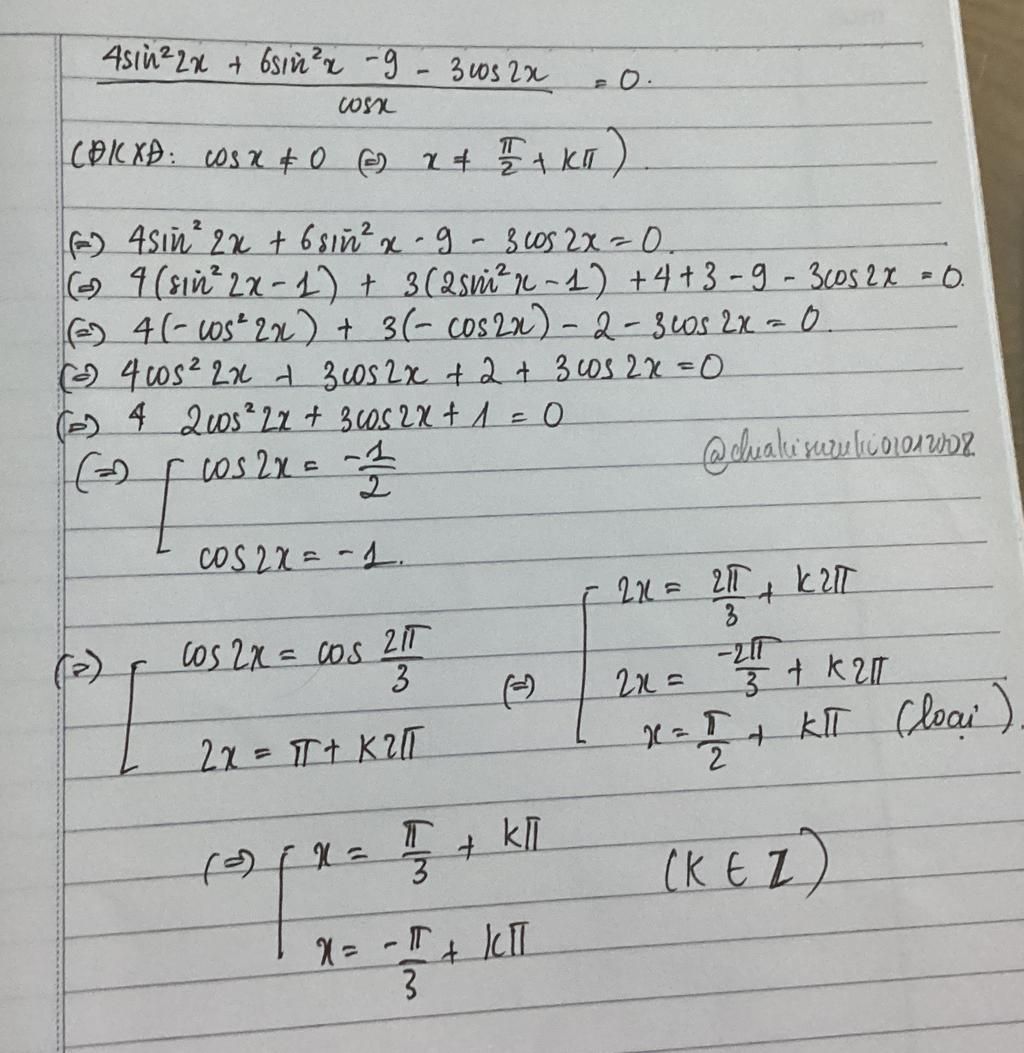 4sin²2x + 6sin²x - 9 - 3cos2x / cosx = 0.
(ĐKXĐ: cosx ≠ 0 (=) x ≠ π/2 + kπ).
(=) 4sin²2x + 6sin²x - 9 - 3cos2x = 0.
(=) 4(sin²2x - 1) + 3(2sin²x - 1) + 4 + 3 - 9 - 3cos2x = 0.
(=) 4(-cos²2x) + 3(-cos2x) - 2 - 3cos2x = 0.
(=) 4cos²2x + 3cos2x + 2 + 3cos2x = 0
(=) 4 2cos²2x + 3cos2x + 1 = 0
(=) [ cos2x = -1/2
@chiakisuzuki01012008
cos2x = -1.
(=) [ cos2x = cos 2π/3
2x = π + k2π
(=) [ 2x = 2π/3 + k2π
2x = -2π/3 + k2π
x = π/2 + kπ (loại).
(=) [ x = π/3 + kπ
x = -π/3 + kπ
(k ∈ Z)